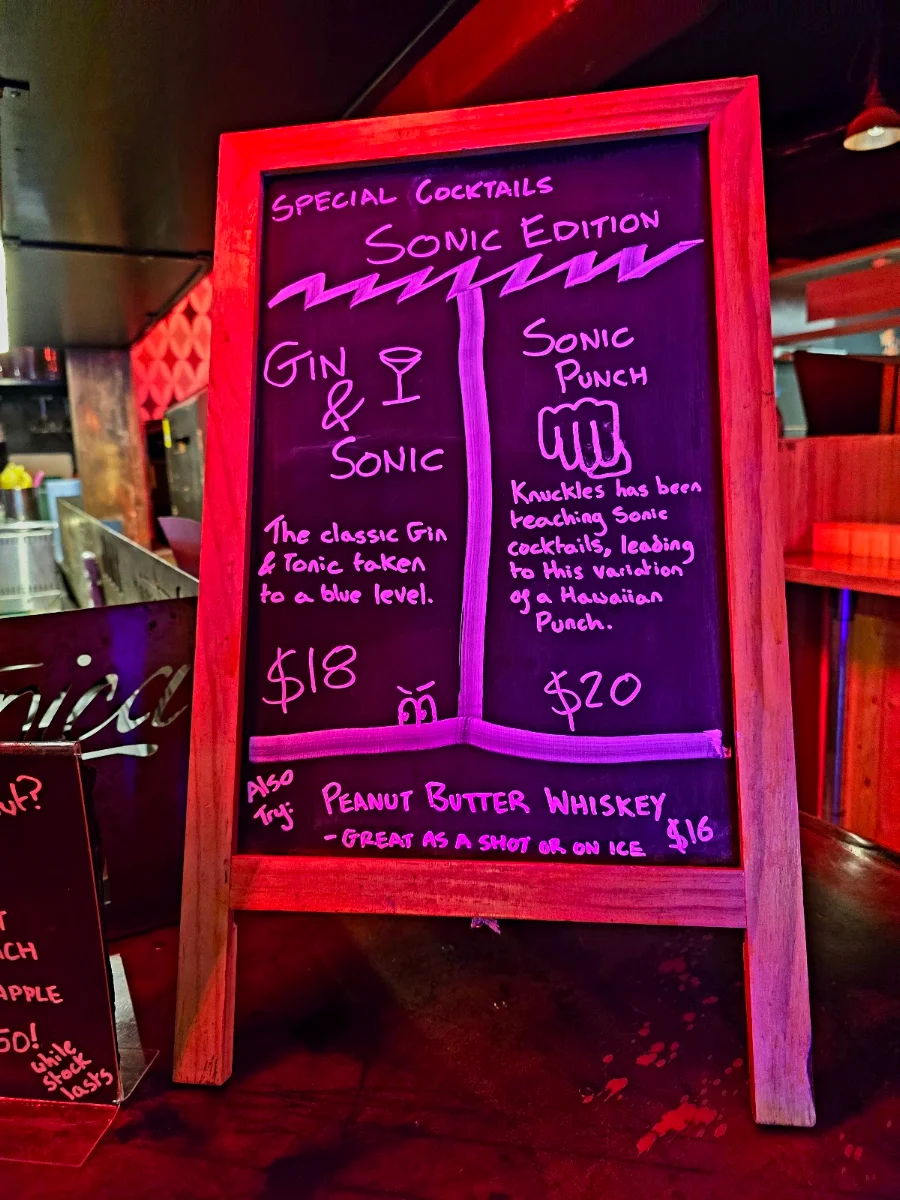 SPECIAL COCKTAILS
SONIC EDITION
GIN
&
SONIC
The classic Gin
& Tonic taken
to a blue level.
$18
SONIC
PUNCH
Knuckles has been
teaching Sonic
cocktails, leading
to this variation
of a Hawaiian
Punch.
$20
Also
Try:
PEANUT BUTTER WHISKEY
- GREAT AS A SHOT OR ON ICE
$16
nica
ut?
T
CH
APPLE
50!
while
stock
lasts